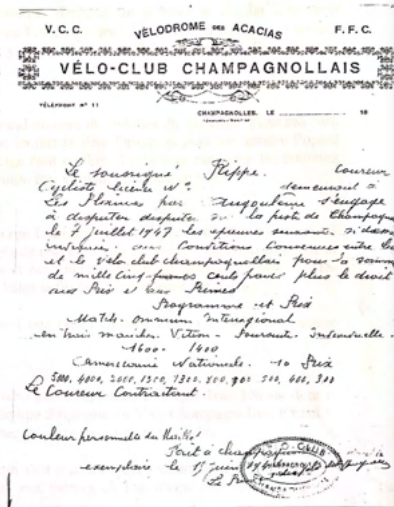 V.C.C.
VÉLODROME DES ACACIAS
F.F.C.
VÉLO-CLUB CHAMPAGNOLLAIS
TÉLÉPHONE N° 11
CHAMPAGNOLLES, LE 19
Le soussigné Flippe. Coureur
Cycliste licence N° demeurant à
Les par Angoulême s'engage
à disputer disputer sur la piste de Champagno
le 7 juillet 1947 les épreuves suivantes
aux Conditions Convenues entre lui
et le Vélo club champagnollais pour la somme
de mille cinq francs cents francs plus le droit
aux Prix et aux Primes
Programme et Prix
Match omnium
en trois manches. Vitesse - Poursuite - Individuelle -
1600 - 1400
Américaine Nationale. 10 Prix
5000, 4000, 2000, 1500, 1300, 800, 500, 400, 300
Le Coureur Contractant.
Couleur personnelle du Maillot
Fait à champagn
exemplaire le 17 juin
Le Pr
CLUB